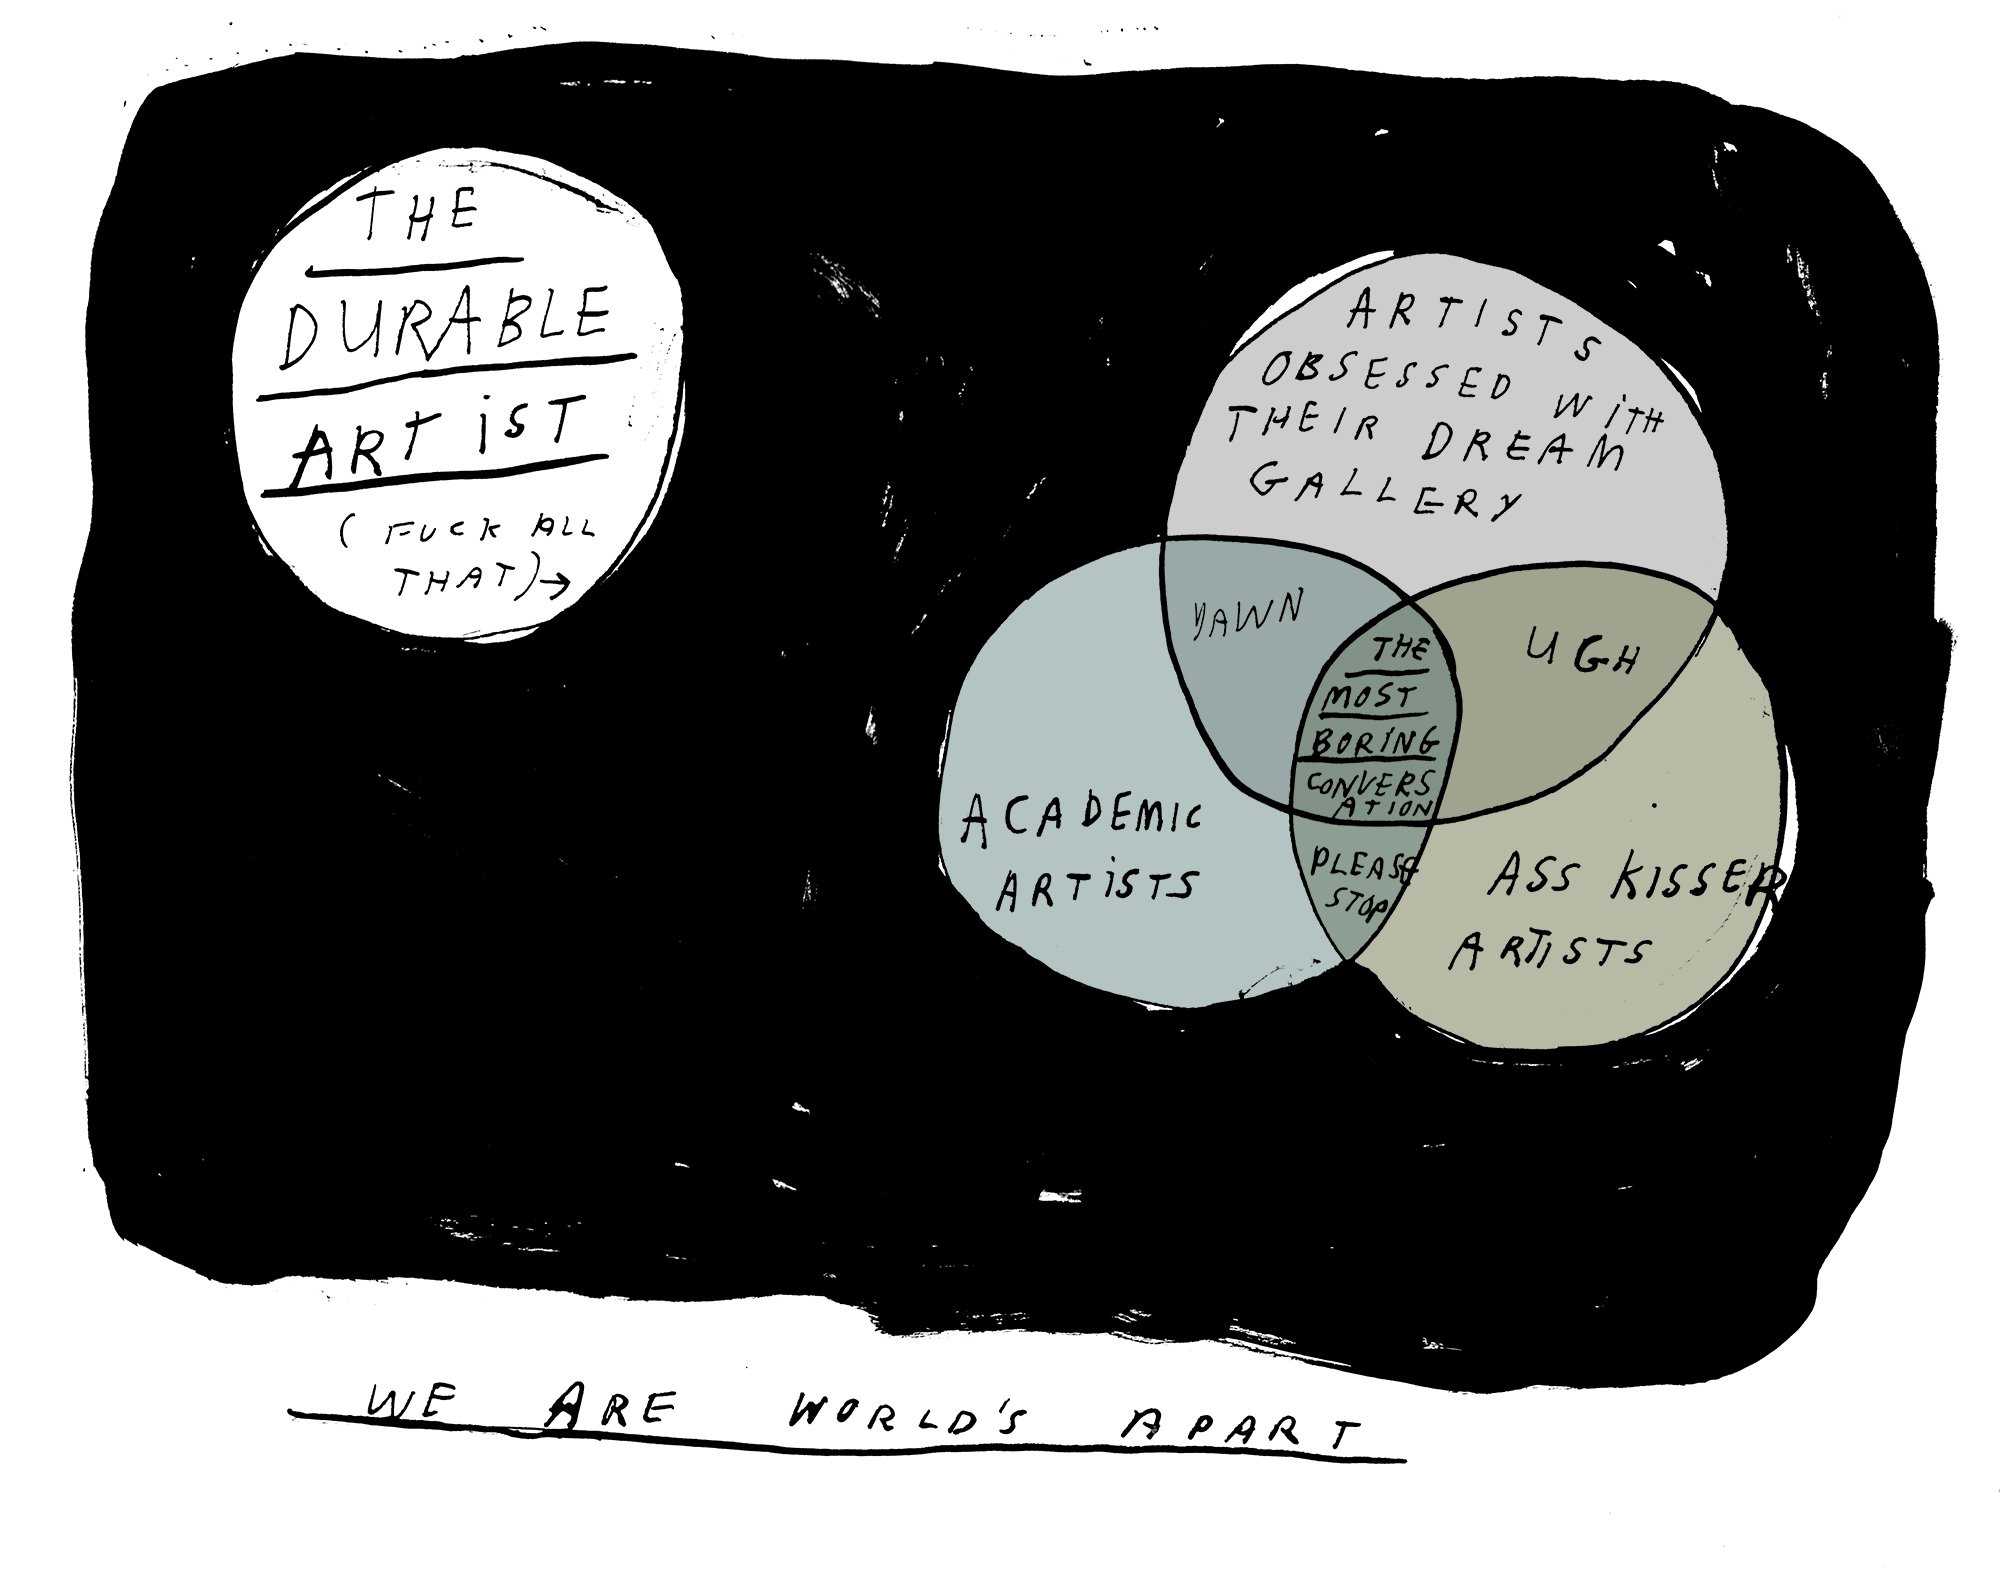 THE
DURABLE
ARTiST
( FUCK ALL
THAT)→
ARTISTS
OBSESSED WiTH
THEIR DREAM
GALLERY
YAWN
UGH
THE
MOST
BORiNG
CONVERS
ATION
PLEASE
STOP
ACADEMIC
ARTiSTS
ASS KISSER
ARTISTS
WE ARE WORLD'S APART